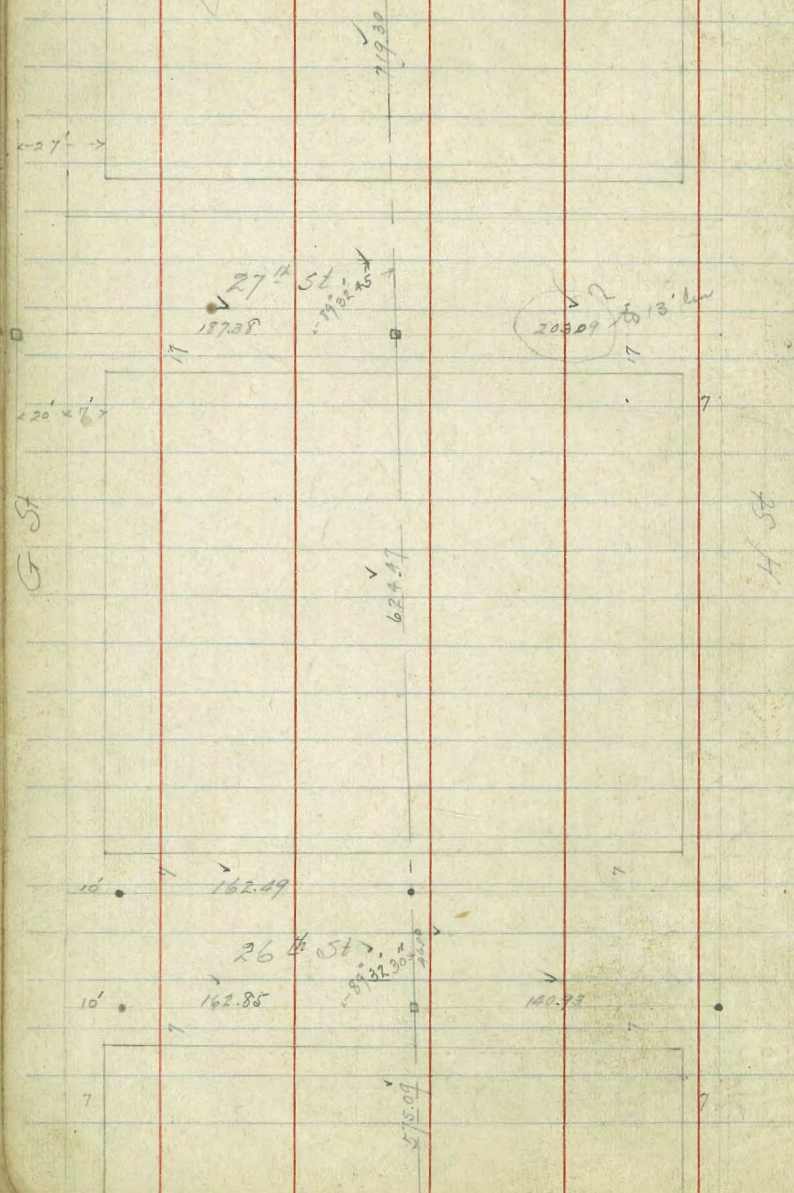 719.30
27'
27th St
89° 32' 45"
187.38
203.09 ?
13'
17
17
20' 7'
7
G St
H St
624.47
7
7
10'
162.49
26th St
89° 32' 30"
10'
162.85
140.93
7
7
7
7
575.09